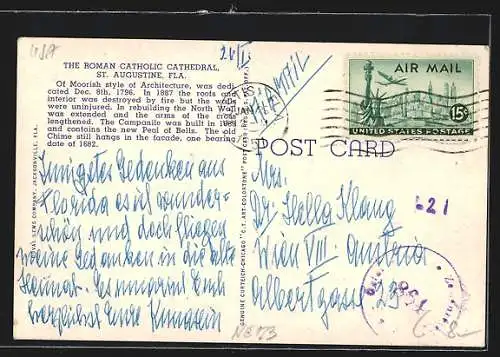 USA
THE ROMAN CATHOLIC CATHEDRAL,
ST. AUGUSTINE, FLA.
Of Moorish style of Architecture, was dedi-
cated Dec. 8th, 1796. In 1887 the roofs and
interior was destroyed by fire but the walls
were uninjured. In rebuilding the North Wall
was extended and the arms of the cross
lengthened. The Campanile was built in 1888
and contains the new Peal of Bells. The old
Chime still hangs in the facade, one bearing
date of 1682.
AIR MAIL
15¢
UNITED STATES POSTAGE
POST CARD
Innigstes Gedenken aus
Florida es ist wunder-
schön und doch fliegen
meine Gedanken in die alte
Heimat. Es umarmt Euch
herzlichst Eure
GENUINE CURTEICH-CHICAGO "C.T. ART-COLORTONE" POST CARD
NEWS COMPANY, JACKSONVILLE, FLA.
Mrs.
Dr. Stella Klang
Wien VIII. Austria
Albertgasse 23
621